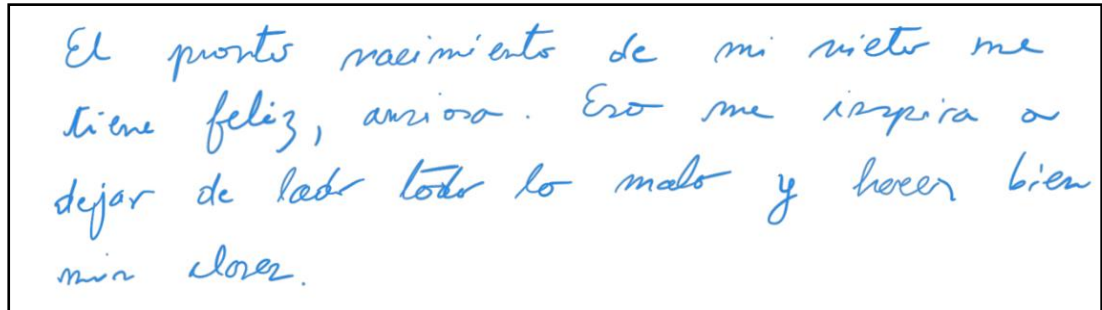 El pronto nacimiento de mi nieto me
tiene feliz, ansiosa. Eso me inspira a
dejar de lado todo lo malo y hacer bien
mis clases.